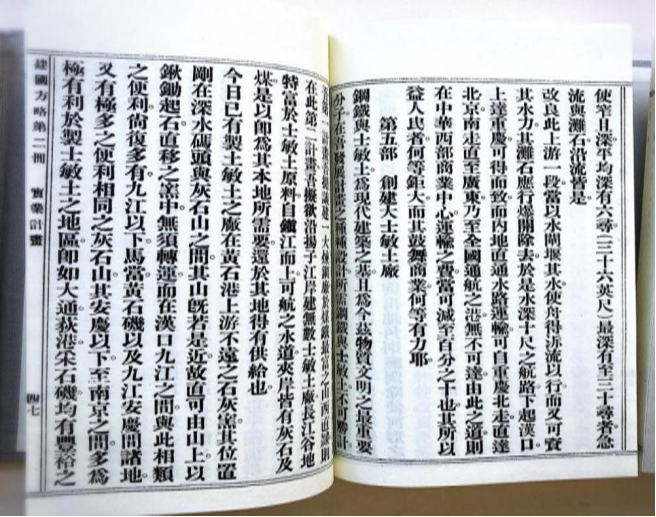 使窄且深平均深有六尋(三十六英尺)最深有至三十尋者急
流與灘石沿流皆是
改良此上游一段當以水閘堰其水使舟得泝流以行而又可實
其水力其灘石應行爆開除去於是水深十尺之航路下起漢口
上達重慶可得而致而內地直通水路運輸可自重慶北走直達
北京南走直至廣東乃至全國通航之港無不可達由此之道則
在中華西部商業中心運輸之費當可減至百分之十也其所以
益人民者何等鉅大而其鼓舞商業何等有力耶
第五部 創建大士敏土廠
鋼鐵與士敏土為現代建築之基且為今茲物質文明之最重要
分子在吾發展計畫之種種設計所需鋼鐵與士敏土不可勝計
在此第二計畫吾擬欲沿揚子江岸建無數士敏土廠長江谷地
特富於士敏土原料自鎮江而上可航之水道夾岸皆有灰石及
煤是以即為其本地所需要還於其地得有供給也
今日已有製士敏土之廠在黃石港上游不遠之石灰窰其位置
剛在深水碼頭與灰石山之間其山既若是近故直可由山上以
鍬鋤起石直移之窰中無須轉運而在漢口九江之間與此相類
之便利尚復多有九江以下馬當黃石磯以及九江安慶間諸地
又有極多之便利相同之灰石山其安慶以下至南京之間多為
極有利於製士敏土之地區即如大通荻港采石磯均有豐裕之
建國方略第二冊 實業計畫 四七